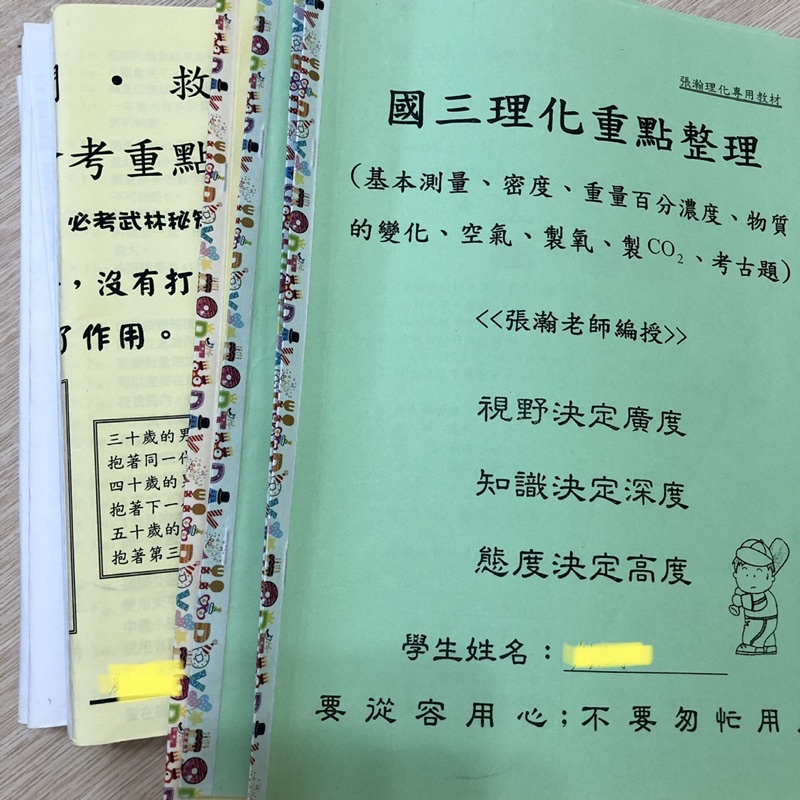 救
考重點
必考武林秘
，沒有打
了作用。
三十歲的男
抱著同一
四十歲的
抱著下一
五十歲的
抱著第三
張瀚理化專用教材
國三理化重點整理
（基本測量、密度、重量百分濃度、物質
的變化、空氣、製氧、製CO₂、考古題）
<<張瀚老師編授>>
視野決定廣度
知識決定深度
態度決定高度
學生姓名：
要從容用心；不要匆忙用